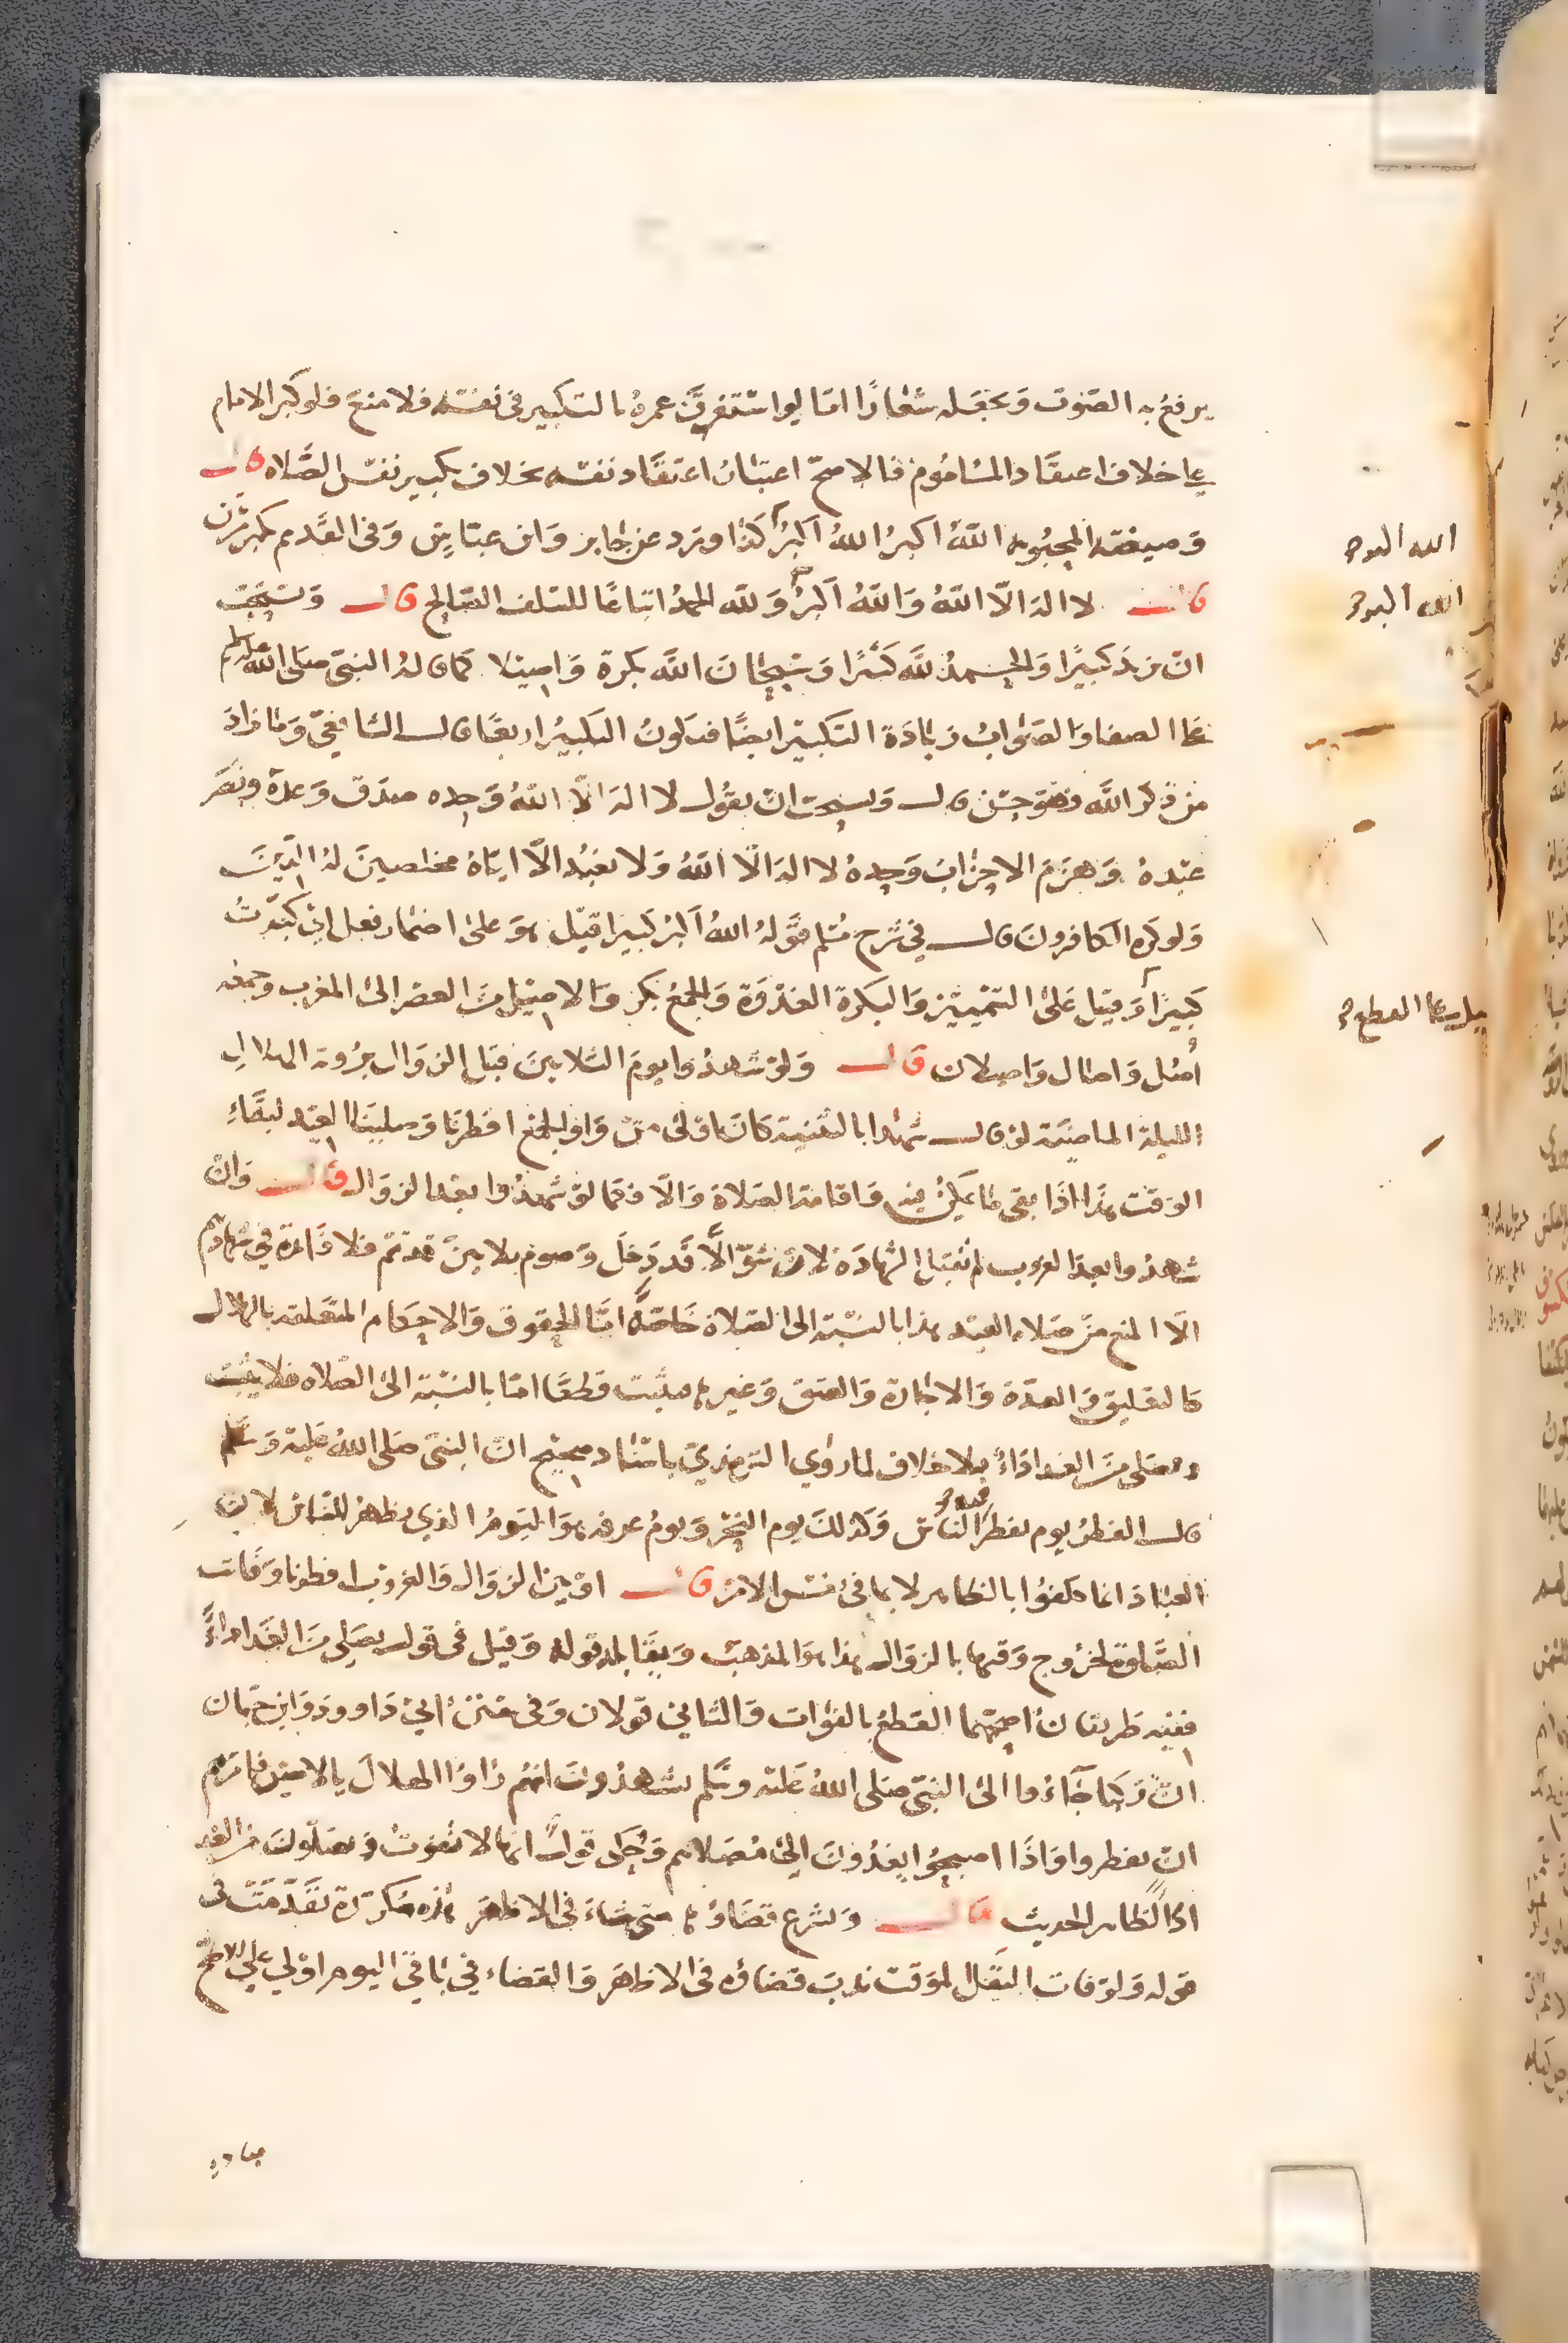 يرفع به الصوت ويجعله شعارًا اما لو استغرق عمره بالتكبير فى نفسه فلا منع فلو كبر الامام
على خلاف اعتقاد الماموم فالاصح اعتبار اعتقاد نفسه بخلاف تكبير نفس الصلاه قال
وصيغته المحبوبه الله اكبر الله اكبر كذا ورد عن جابر وابن عباس وفى القديم يكبر مرتين
قال لا اله الا الله والله اكبر ولله الحمد اتباعًا للسلف الصالح قال ويستحب
ان يزيد كبيرًا والحمد لله كثيرًا وسبحان الله بكرة واصيلا كما قاله النبى صلى الله عليه وسلم
على الصفا والصواب زيادة التكبير ايضًا فيكون التكبير اربعًا قال الشافعى وما زاد
من ذكر الله فهو حسن قال ويستحب ان يقول لا اله الا الله وحده صدق وعده ونصر
عبده وهزم الاحزاب وحده لا اله الا الله ولا نعبد الا اياه مخلصين له الدين
ولو كره الكافرون قال في شرح مسلم قوله الله اكبر كبيرا قيل هو على اضمار فعل اي كبرت
كبيرًا وقيل على التمييز والبكرة الغدوة والجمع بكر والاصيل من العصر الى المغرب وجمعه
أصل واصال واصلان قال ولو شهدوا يوم الثلاثين قبل الزوال برؤية الهلال
الليلة الماضية لو قال شهدا بالتثنية كان اولى من واو الجمع افطرنا وصلينا العيد لبقاء
الوقت هذا اذا بقى ما يمكن فيه واقامة الصلاة والا فكما لو شهدوا بعد الزوال قال وان
شهدوا بعد الغروب لم تقبل الشهادة لان شوالا قد دخل وصوم ثلاثين قد تم فلا فائدة في شهادتهم
الا المنع من صلاة العيد هذا بالنسبة الى الصلاة خاصة اما الحقوق والاحكام المتعلقه بالهلال
كالتعليق والعدة والاجارة والعتق وغيرها فيثبت قطعًا اما بالنسبة الى الصلاه فلا يثبت
وتصلى من الغد اداءً بلا خلاف لما روي الترمذي باسناد صحيح ان النبى صلى الله عليه وسلم
قال الفطر يوم يفطر الناس وكذلك يوم النحر ويوم عرفه هو اليوم الذي يظهر للناس لان
العباد انما كلفوا بالظاهر لا بما في نفس الامر قال او بين الزوال والغروب افطرنا وفاتت
الصلوة لخروج وقتها بالزوال هذا هو المذهب ويقابله قوله وقيل فى قول يصلى من الغد اداءً
ففيه طريقان اصحهما القطع بالفوات والثاني قولان وفى سنن ابي داوود وابن حبان
ان ركبا جاءوا الى النبى صلى الله عليه وسلم يشهدون انهم راوا الهلال بالامس فامرهم
ان يفطروا واذا اصبحوا يغدون الى مصلاهم وحكى قول انها لا تفوت ويصلون من الغد
اداءً لظاهر الحديث قال ويشرع قضاؤها متى شاء فى الاظهر هذه مكررة تقدمت فى
قوله ولو فات النفل الموقت ندب قضاؤه فى الاظهر والقضاء في باقي اليوم اولي علي الاصح
الله اكبر
الله اكبر